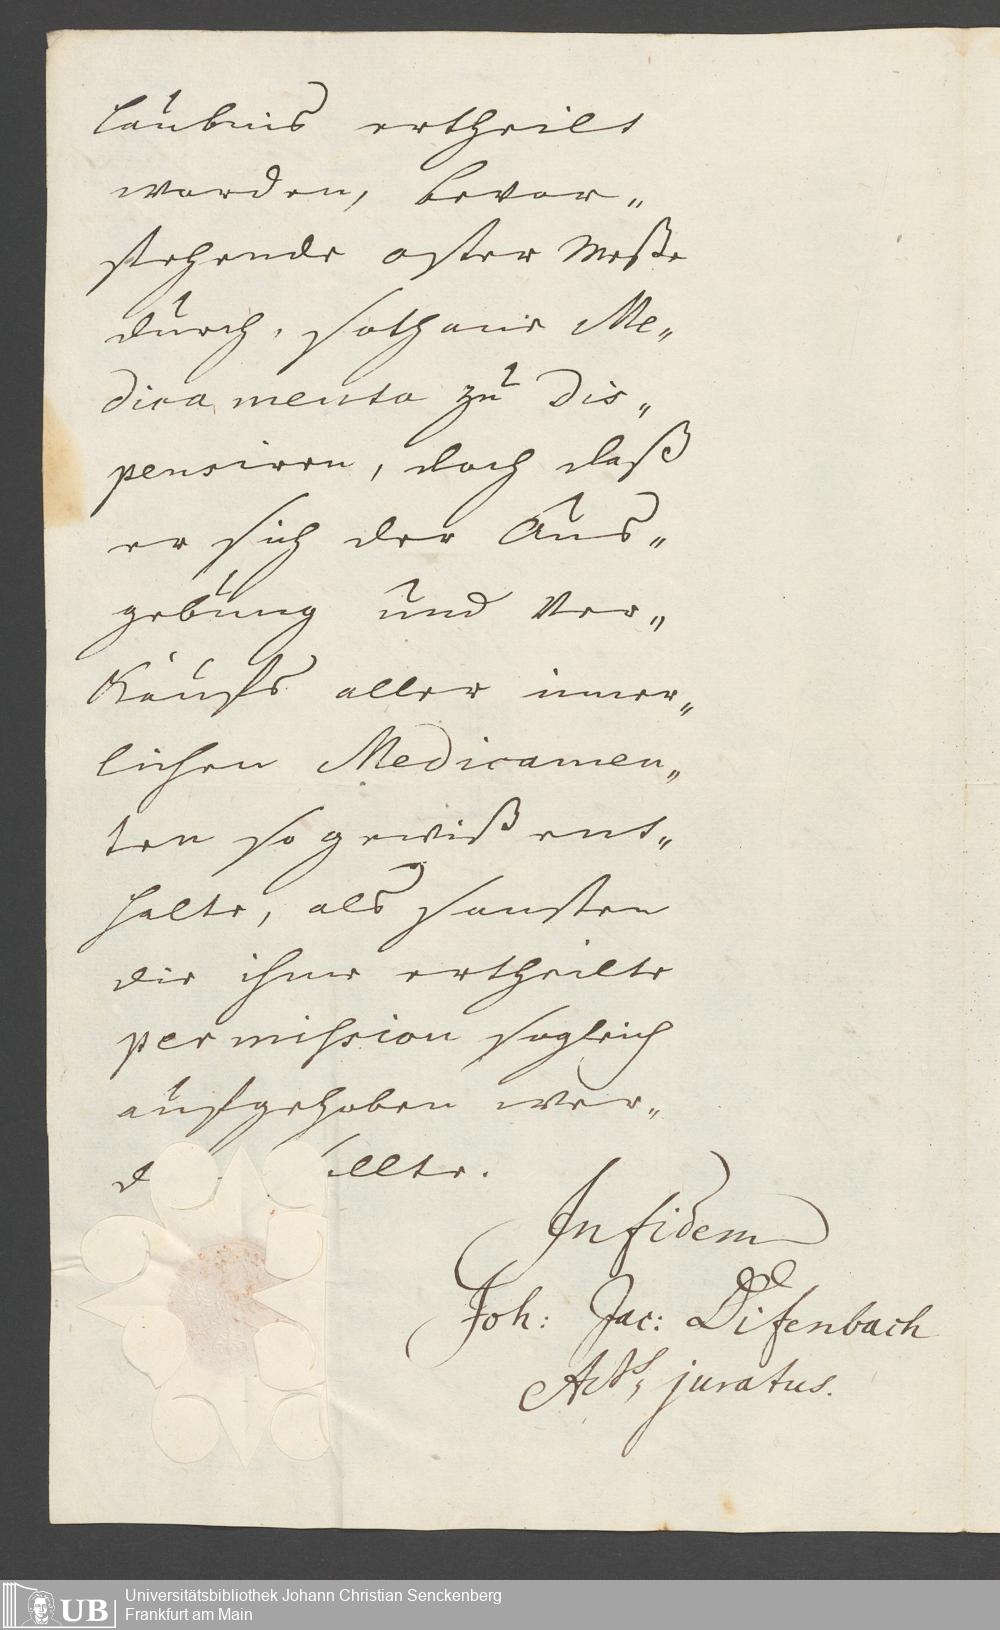 laubnis ertheilt
worden, bevor„
stehende oster Meße
durch, sothane Me„
dicamenta zu dis„
pensiren, doch daß
er sich der Aus„
gebung und Ver„
kaufs aller inner„
lichen Medicamen„
ten so gewiß ent„
halte, als sonsten
die ihme ertheilte
permission sogleich
aufgehoben wer„
d ollte.
In fidem
Joh: Jac: Difenbach
Acts, juratus.
UB
Universitätsbibliothek Johann Christian Senckenberg
Frankfurt am Main